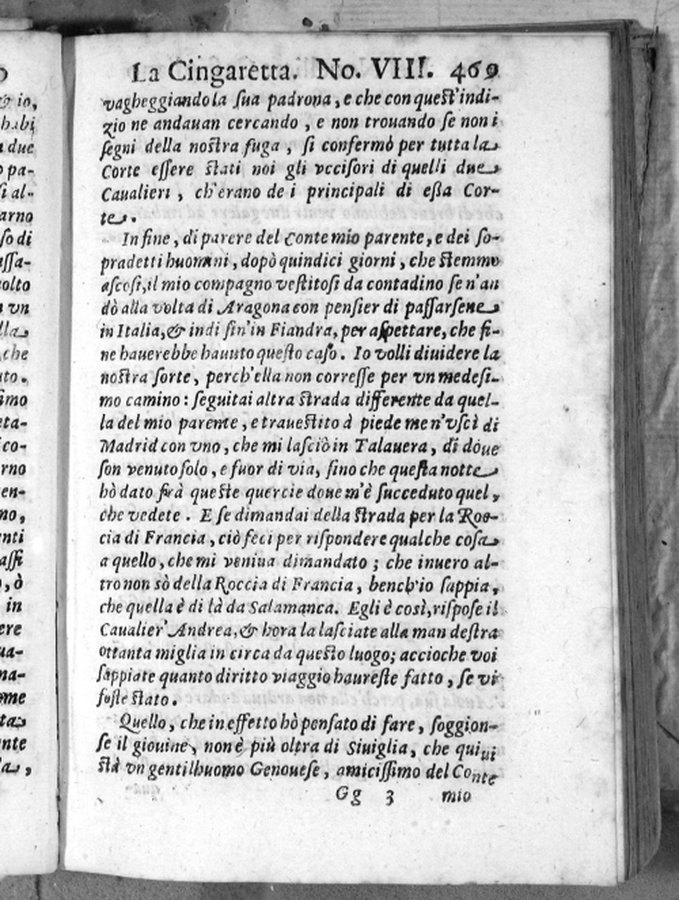 La Cingaretta. No. VIII. 469
vagheggiando la ſua padrona, e che con queſt'indi-
zio ne andauan cercando, e non trouando ſe non i
ſegni della noſtra fuga, ſi confermò per tutta la
Corte eſſere ſtati noi gli vcciſori di quelli due
Caualieri, ch'erano de i principali di eſſa Cor-
te.
In fine, di parere del Conte mio parente, e dei ſo-
pradetti huomini, dopò quindici giorni, che ſtemmo
aſcoſi, il mio compagno veſtitoſi da contadino ſe n'an
dò alla volta di Aragona con penſier di paſſarſene
in Italia, & indi ſin'in Fiandra, per aſpettare, che fi-
ne hauerebbe hauuto queſto caſo. Io volli diuidere la
noſtra ſorte, perch'ella non correſſe per vn medeſi-
mo camino: ſeguitai altra ſtrada differente da quel-
la del mio parente, e traueſtito à piede me n'vſcì di
Madrid con vno, che mi laſciò in Talauera, di doue
ſon venuto ſolo, e fuor di via, fino che queſta notte
hò dato frà queſte quercie doue m'è ſucceduto quel,
che vedete. E ſe dimandai della ſtrada per la Roc-
cia di Francia, ciò feci per riſpondere qualche coſa
a quello, che mi veniua dimandato; che inuero al-
tro non sò della Roccia di Francia, bench'io ſappia,
che quella è di là da Salamanca. Egli è così, riſpoſe il
Caualier' Andrea, & hora la laſciate alla man deſtra
ottanta miglia in circa da queſto luogo; accioche voi
ſappiate quanto diritto viaggio haureſte fatto, ſe vi
foſte ſtato.
Quello, che in effetto hò penſato di fare, ſoggion-
ſe il giouine, non è più oltra di Siuiglia, che quiui
ſtà vn gentilhuomo Genoueſe, amiciſſimo del Conte
Gg 3 mio